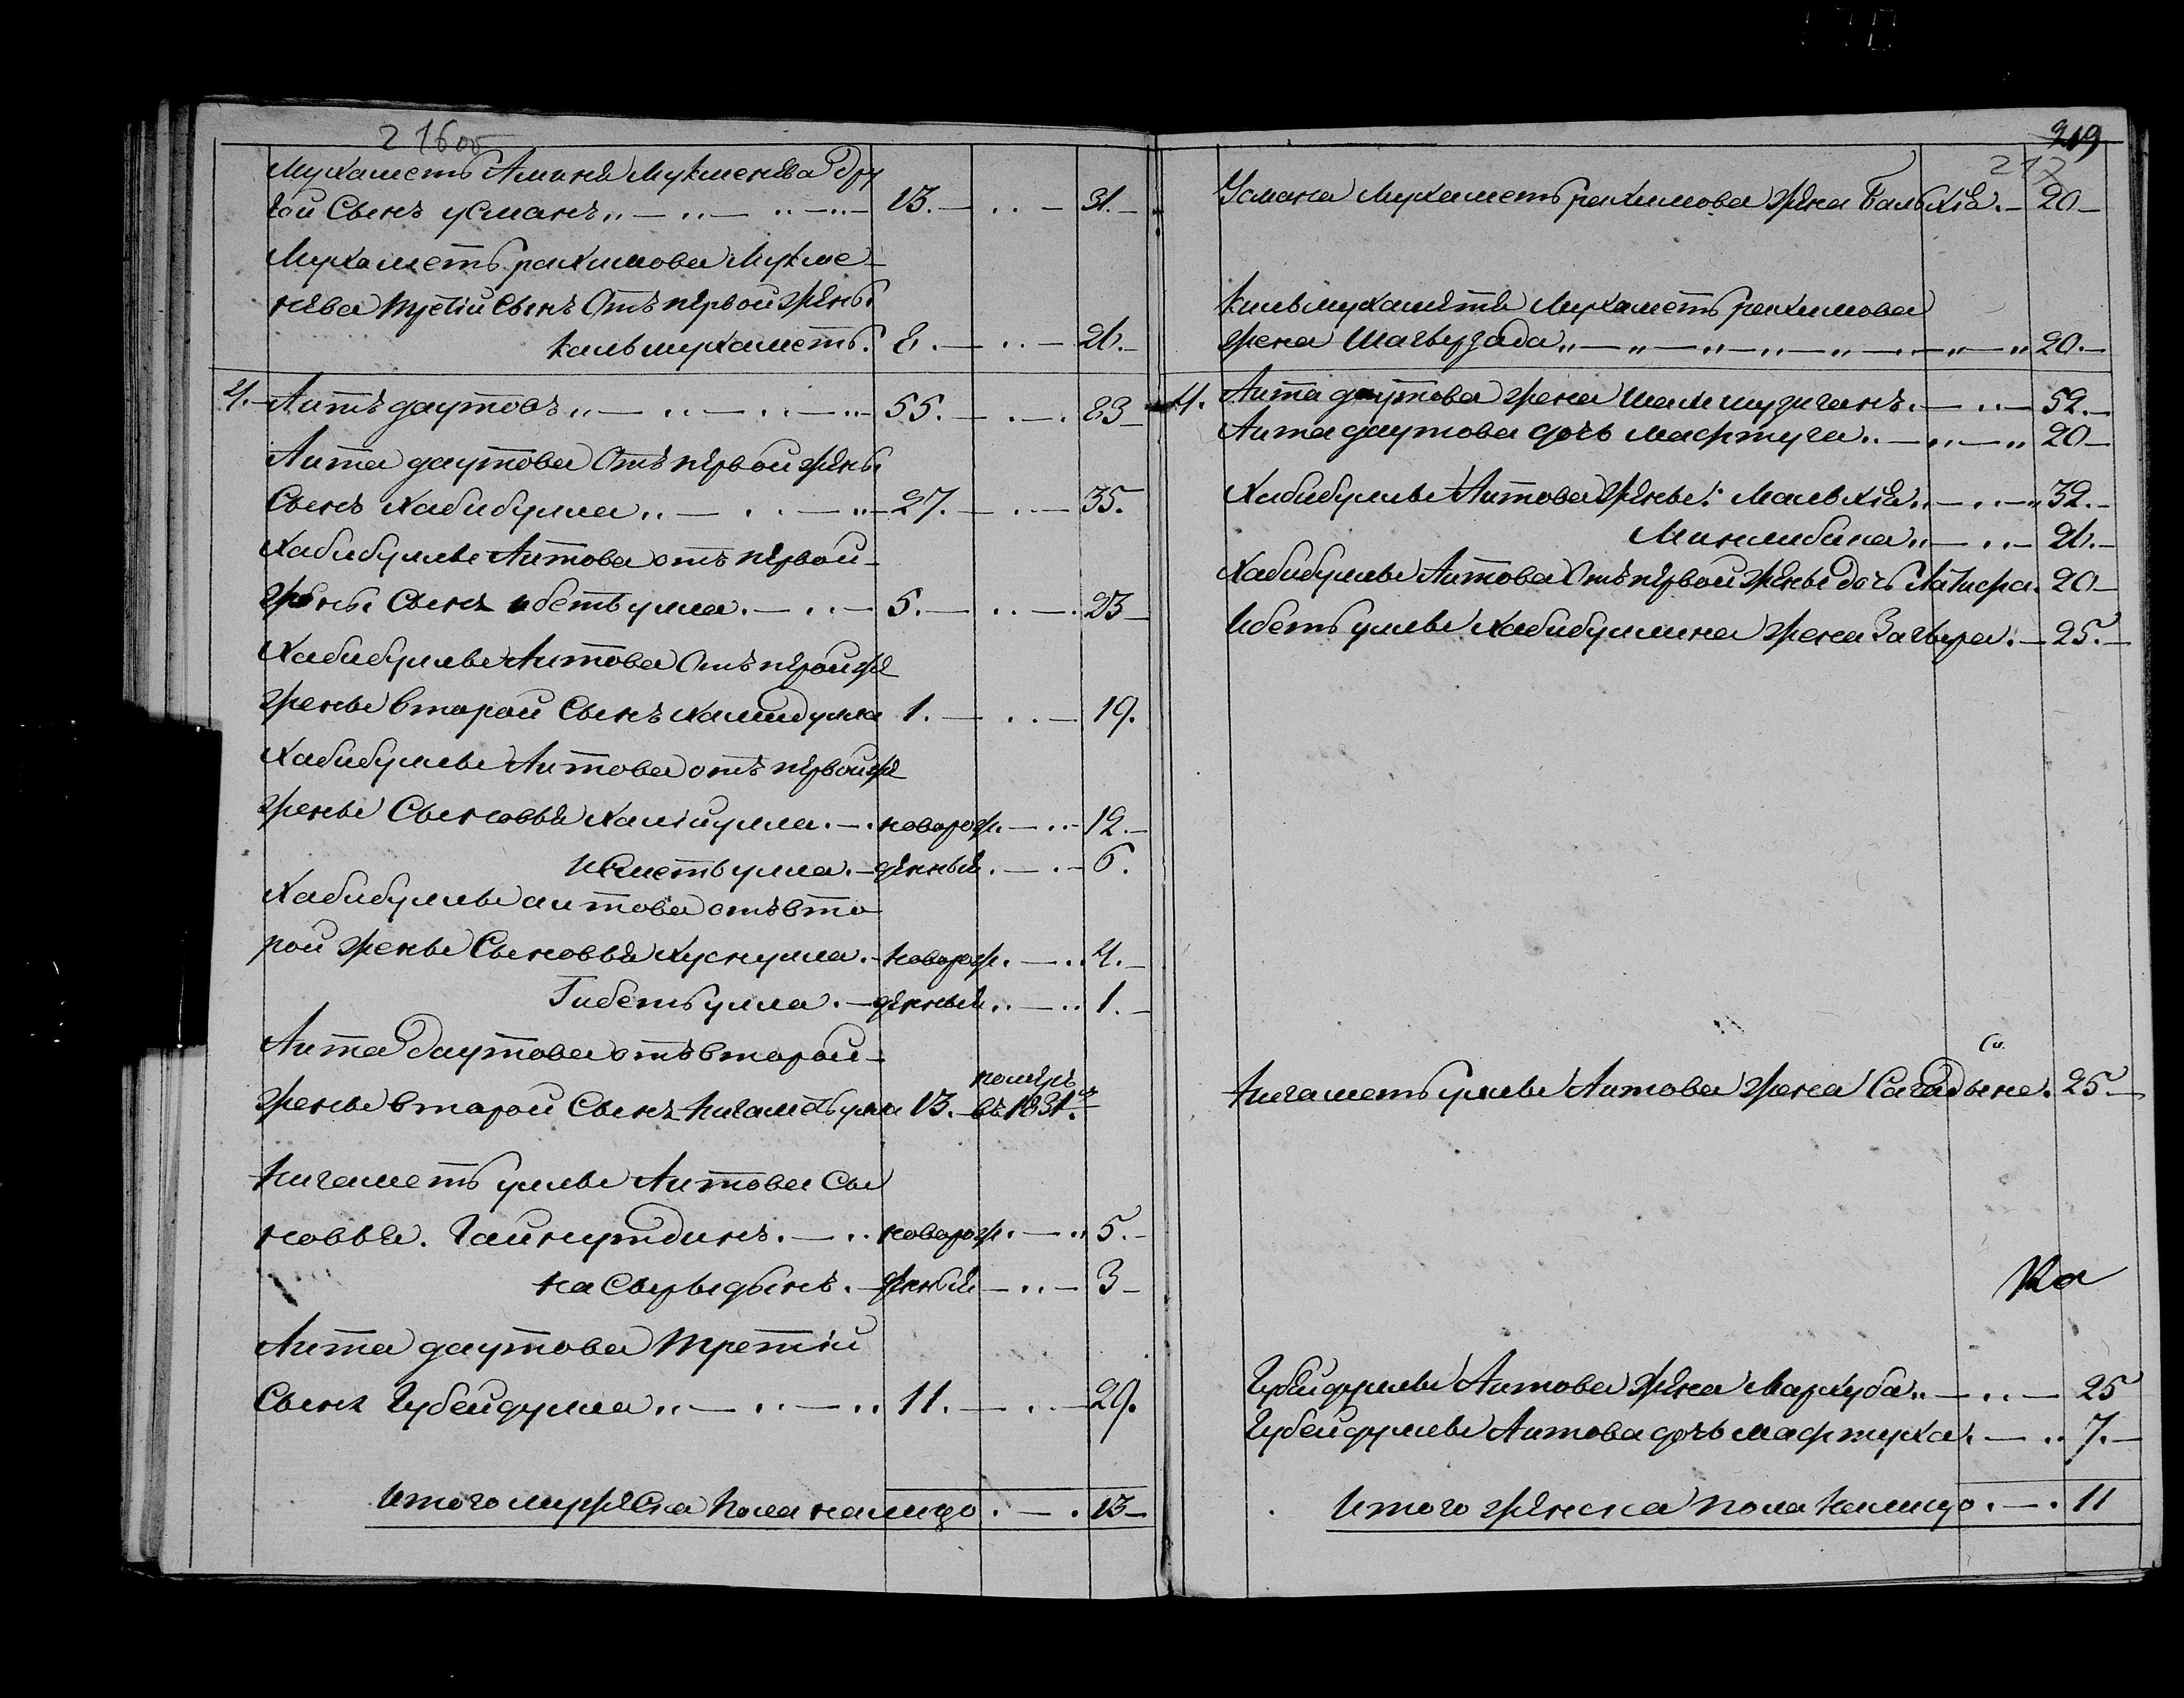 216об
Мухаметъ Амина Мукменева дру
гой Сынъ усманъ 13. 31.
Мухаметь рахимова Мукме-
нева третiй Сынъ Отъ первой жены
кальмухаметь. 8. 26.
4. Аитъ даутовъ 55. 83
Аита даутова Отъ первой жены
Сынъ Хабибулла 27. 35.
Хабибуллы Аитова отъ первой
жены Сынъ ибетьулла. 5. 23
Хабибуллы Аитова Отъ первой же
жены второй Сынъ Хамидулла 1. 19.
Хабибуллы Аитова отъ первой же
жены Сыновья Халиулла. новорож. 12.
Исметьулла. денный. 6.
Хабибуллы аитова отъ вто
рой жены Сыновья Хуснулла. новорож. 4.
Гибетьулла. денный. 1.
Аита Даутова отъ второй
жены второй Сынъ Нигаметьулла 13. померъ въ 1831.
Нигаметь уллы Аитова Сы
новья. Гайнутдинъ. новорож. 5.
насырыдынъ. денный 3
Аита даутова третiй
Сынъ Губейдулла 11. 29.
Итого мужеска пола налицо 13
219
217
Усмана Мухаметьрахимова жена Бальхiя. 20
кальмухаметя Мухаметь рахимова
жена Шагьрзада 20.
4. Аита даутова жена шахмузиганъ. 52.
Аита даутова дочь мафтуга 20
Хабибуллы Аитова жены: Мальхiя 32.
Минлибика 26.
Хабибуллы Аитова Отъ первой жены дочь Латифа. 20
Ибетьуллы Хабибуллина жена Загьра. 25.
Нигаметьуллы Аитова жена Сагадьяна. 25.
Ка
Губейдуллы Аитова жена Маргуба 25
Губейдуллы Аитова дочь мафтуха. 7.
Итого женска пола Налицо. 11